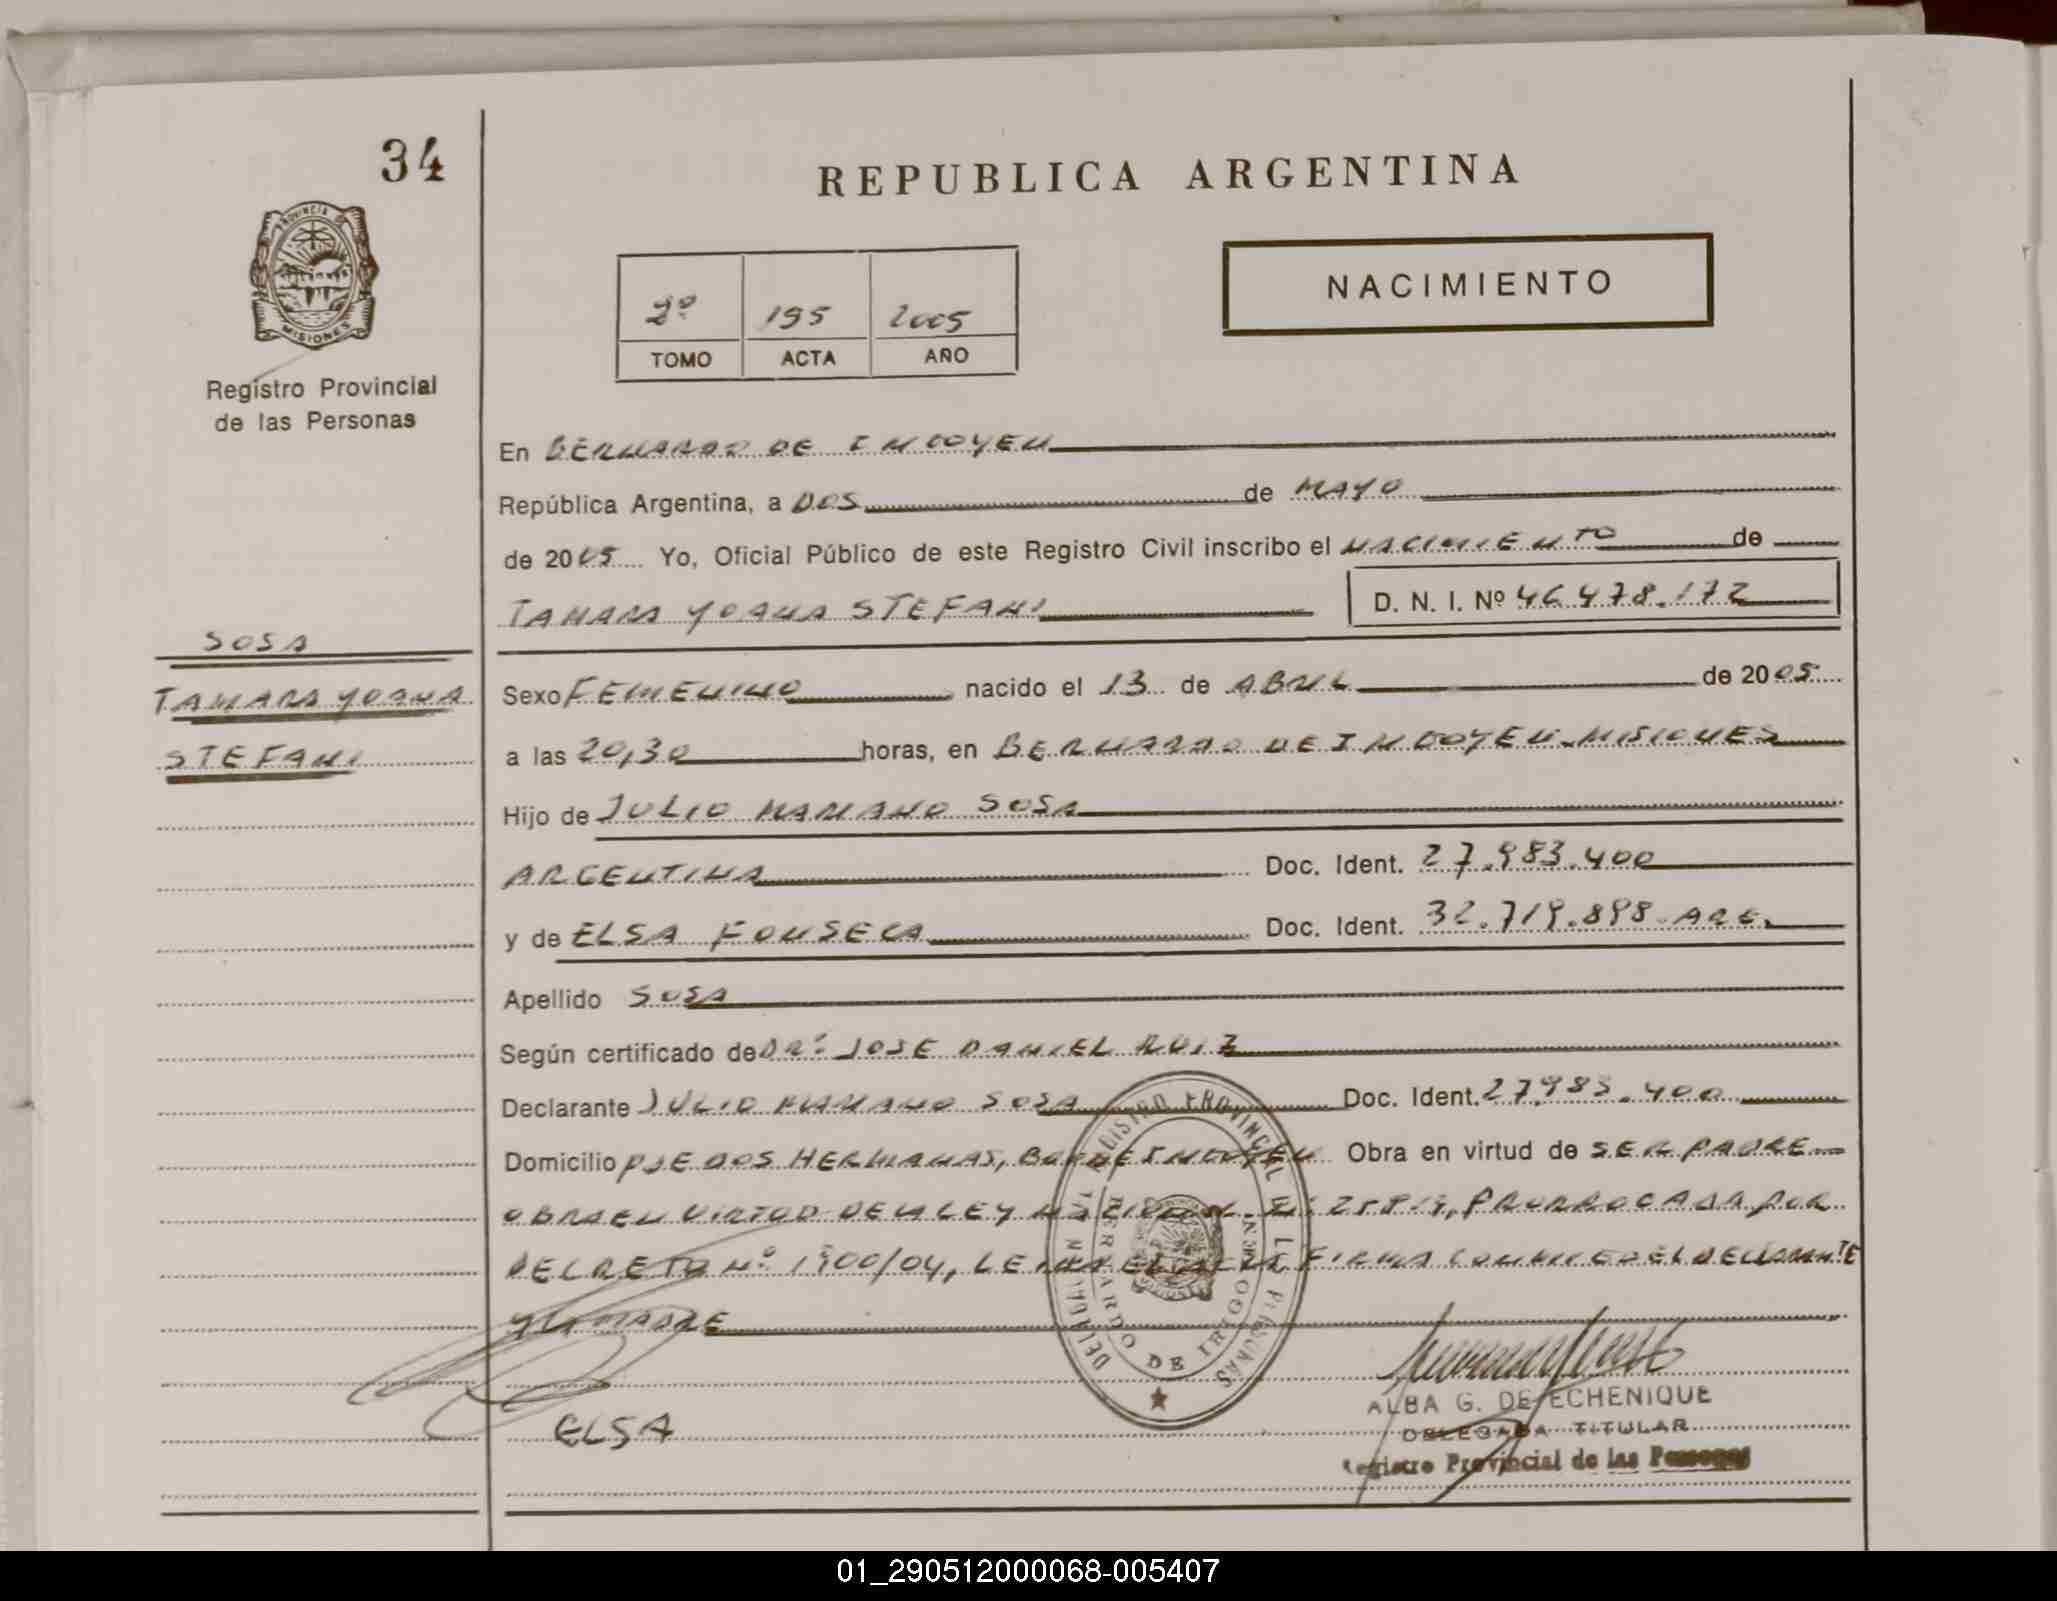 34
REPUBLICA ARGENTINA
PROVINCIA DE
MISIONES
NACIMIENTO
2º 195 2005
TOMO ACTA AÑO
Registro Provincial
de las Personas
En BERNARDO DE IRIGOYEN
República Argentina, a DOS de MAYO
de 2005 Yo, Oficial Público de este Registro Civil inscribo el NACIMIENTO de
TAMARA YOANA STEFANI D. N. I. Nº 46.478.172
SOSA
TAMARA YOANA
STEFANI
Sexo FEMENINO nacido el 13 de ABRIL de 2005
a las 20,30 horas, en BERNARDO DE IRIGOYEN-MISIONES
Hijo de JULIO MARIANO SOSA
ARGENTINA Doc. Ident. 27.983.400
y de ELSA FONSECA Doc. Ident. 32.719.898-ARG.
Apellido SOSA
Según certificado de DRº JOSE DANIEL RUIZ
Declarante JULIO MARIANO SOSA Doc. Ident. 27.983.400
Domicilio PJE DOS HERMANAS, BDO DE IRIGOYEN Obra en virtud de SER PADRE
OBRA EN VIRTUD DE LA LEY NACIONAL Nº 25819, PRORROGADA POR
DECRETO Nº 1900/04, LEIDA EL ACTA FIRMA CONMIGO EL DECLARANTE
Y LA MADRE
REGISTRO PROVINCIAL DE LAS PERSONAS
BERNARDO DE IRIGOYEN
ELSA
ALBA G. DE ECHENIQUE
DELEGADA TITULAR
Registro Provincial de las Personas
01_290512000068-005407